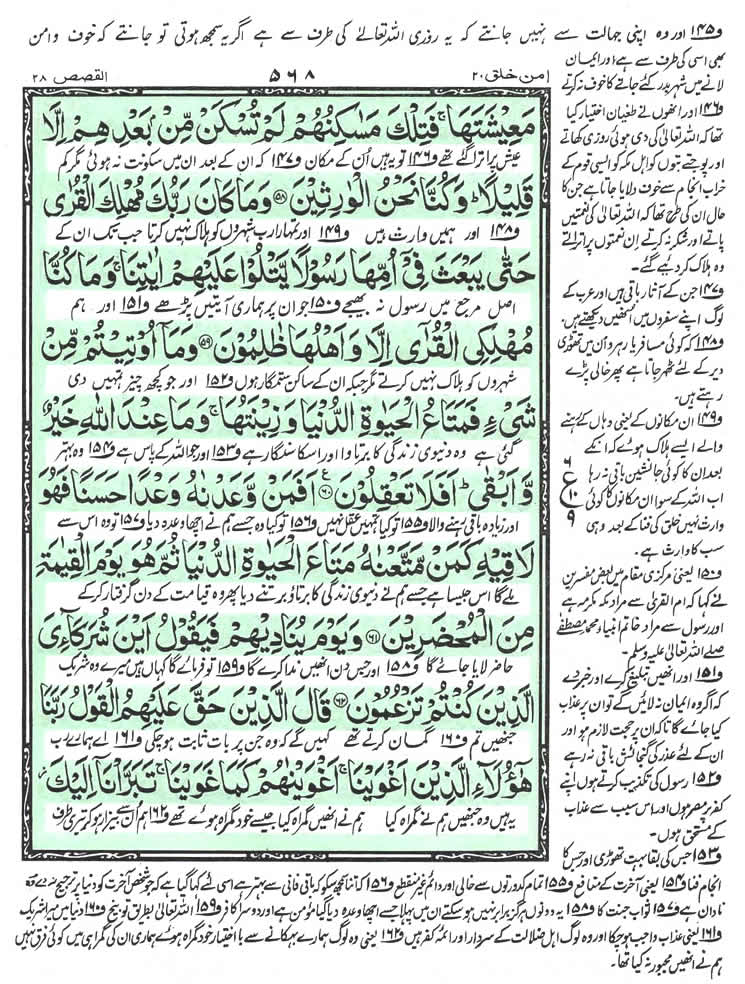 و۱۴۵ اور وہ اپنی جہالت سے نہیں جانتے کہ یہ روزی اللہ تعالٰے کی طرف سے ہے اگر یہ سمجھ ہوتی تو جانتے کہ خوف و امن
القصص ۲۸
۵۶۸
امن خلق ۲۰
بھی اسی کی طرف سے ہے اور ایمان
لانے میں شہر بدر کئے جانے کا خوف نہ کرتے
و۱۴۶ اور انھوں نے طغیان اختیار کیا
تھا کہ اللہ تعالٰی کی دی ہوئی روزی کھاتے
اور پوجتے بتوں کو اہل مکہ کو ایسی قوم کے
خراب انجام سے خوف دلایا جاتا ہے جن کا
حال ان کی طرح تھا کہ اللہ تعالٰی کی نعمتیں
پاتے اور شکر نہ کرتے ان نعمتوں پر اتراتے
وہ ہلاک کر دیے گئے۔
و۱۴۷ جن کے آثار باقی ہیں اور عرب کے
لوگ اپنے سفروں میں انھیں دیکھتے ہیں۔
و۱۴۸ کہ کوئی مسافر یا رہرو ان میں تھوڑی
دیر کے لئے ٹھہر جاتا ہے پھر خالی پڑے
رہتے ہیں۔
و۱۴۹ ان مکانوں کے یعنی وہاں کے رہنے
والے ایسے ہلاک ہوئے کہ انکے
بعد ان کا کوئی جانشین باقی نہ رہا
اب اللہ کے سوا ان مکانوں کا کوئی
وارث نہیں خلق کی فنا کے بعد وہی
سب کا وارث ہے۔
و۱۵۰ یعنی مرکزی مقام میں بعض مفسرین
نے کہا کہ ام القریٰ سے مراد مکہ مکرمہ ہے
اور رسول سے مراد خاتم انبیاء محمد مصطفٰے
صلے اللہ تعالٰی علیہ وسلم۔
و۱۵۱ اور انھیں تبلیغ کرے اور خبر دے
کہ اگر وہ ایمان نہ لائیں گے تو ان پر عذاب
کیا جائے گا تاکہ ان پر حجت لازم ہو اور
ان کے لئے عذر کی گنجائش باقی نہ رہے
و۱۵۲ رسول کی تکذیب کرتے ہوں اپنے
کفر پر مصر ہوں اور اس سبب سے عذاب
کے مستحق ہوں۔
و۱۵۳ جس کی بقا بہت تھوڑی اور جس کا
ع
۶
۱۰
۹
مَعِيْشَتَهَا ۚ فَتِلْكَ مَسٰكِنُهُمْ لَمْ تُسْكَنْ مِّنْۢ بَعْدِهِمْ اِلَّا
عیش پر اترا گئے تھے و۱۴۶ تو یہ ہیں اُن کے مکان و۱۴۷ کہ ان کے بعد ان میں سکونت نہ ہوئی مگر کم
قَلِيْلًا ؕ وَ كُنَّا نَحْنُ الْوٰرِثِيْنَ ﴿۵۸﴾ وَ مَا كَانَ رَبُّكَ مُهْلِكَ الْقُرٰى
و۱۴۸ اور ہمیں وارث ہیں و۱۴۹ اور تمہارا رب شہروں کو ہلاک نہیں کرتا جب تک ان کے
حَتّٰى يَبْعَثَ فِيْۤ اُمِّهَا رَسُوْلًا يَّتْلُوْا عَلَيْهِمْ اٰيٰتِنَا ۚ وَ مَا كُنَّا
اصل مرجع میں رسول نہ بھیجے و۱۵۰ جو ان پر ہماری آیتیں پڑھے و۱۵۱ اور ہم
مُهْلِكِي الْقُرٰۤى اِلَّا وَ اَهْلُهَا ظٰلِمُوْنَ ﴿۵۹﴾ وَ مَاۤ اُوْتِيْتُمْ مِّنْ
شہروں کو ہلاک نہیں کرتے مگر جبکہ ان کے ساکن ستمگار ہوں و۱۵۲ اور جو کچھ چیز تمہیں دی
شَيْءٍ فَمَتَاعُ الْحَيٰوةِ الدُّنْيَا وَ زِيْنَتُهَا ۚ وَ مَا عِنْدَ اللّٰهِ خَيْرٌ
گئی ہے وہ دنیوی زندگی کا برتاوا اور اسکا سنگار ہے و۱۵۳ اور جو اللہ کے پاس ہے و۱۵۴ وہ بہتر
وَّ اَبْقٰى ؕ اَفَلَا تَعْقِلُوْنَ ﴿۶۰﴾ اَفَمَنْ وَّعَدْنٰهُ وَعْدًا حَسَنًا فَهُوَ
اور زیادہ باقی رہنے والا و۱۵۵ تو کیا تمہیں عقل نہیں و۱۵۶ تو کیا وہ جسے ہم نے اچھا وعدہ دیا و۱۵۷ تو وہ اس سے
لَاقِيْهِ كَمَنْ مَّتَّعْنٰهُ مَتَاعَ الْحَيٰوةِ الدُّنْيَا ثُمَّ هُوَ يَوْمَ الْقِيٰمَةِ
ملے گا اس جیسا ہے جسے ہم نے دنیوی زندگی کا برتاؤ برتنے دیا پھر وہ قیامت کے دن گرفتار کر کے
مِنَ الْمُحْضَرِيْنَ ﴿۶۱﴾ وَ يَوْمَ يُنَادِيْهِمْ فَيَقُوْلُ اَيْنَ شُرَكَآءِيَ
حاضر لایا جائے گا و۱۵۸ اور جس دن انھیں ندا کرے گا و۱۵۹ تو فرمائے گا کہاں ہیں میرے وہ شریک
الَّذِيْنَ كُنْتُمْ تَزْعُمُوْنَ ﴿۶۲﴾ قَالَ الَّذِيْنَ حَقَّ عَلَيْهِمُ الْقَوْلُ رَبَّنَا
جنھیں تم و۱۶۰ گمان کرتے تھے کہیں گے وہ جن پر بات ثابت ہو چکی و۱۶۱ اے ہمارے رب
هٰۤؤُلَآءِ الَّذِيْنَ اَغْوَيْنَا ۚ اَغْوَيْنٰهُمْ كَمَا غَوَيْنَا ۚ تَبَرَّاْنَاۤ اِلَيْكَ
یہ ہیں وہ جنھیں ہم نے گمراہ کیا ہم نے انھیں گمراہ کیا جیسے خود گمراہ ہوئے تھے و۱۶۲ ہم ان سے بیزار ہو کر تیری طرف
انجام فنا و۱۵۴ یعنی آخرت کے منافع و۱۵۵ تمام کدورتوں سے خالی اور دائم غیر منقطع و۱۵۶ کہ اتنا سمجھ سکو کہ باقی فانی سے بہتر ہے اسی لئے کہا گیا ہے کہ جو شخص آخرت کو دنیا پر ترجیح نہ دے وہ
نادان ہے و۱۵۷ ثواب جنت کا و۱۵۸ یہ دونوں ہرگز برابر نہیں ہو سکتے ان میں پہلا جسے اچھا وعدہ دیا گیا مومن ہے اور دوسرا کافر و۱۵۹ اللہ تعالٰی بطریق توبیخ و۱۶۰ دنیا میں میرا شریک
و۱۶۱ یعنی عذاب واجب ہو چکا اور وہ لوگ اہل ضلالت کے سردار اور ائمہ کفر ہیں و۱۶۲ یعنی وہ لوگ ہمارے بہکانے سے با اختیار خود گمراہ ہوئے ہماری ان کی گمراہی میں کوئی فرق نہیں
ہم نے انھیں مجبور نہ کیا تھا۔